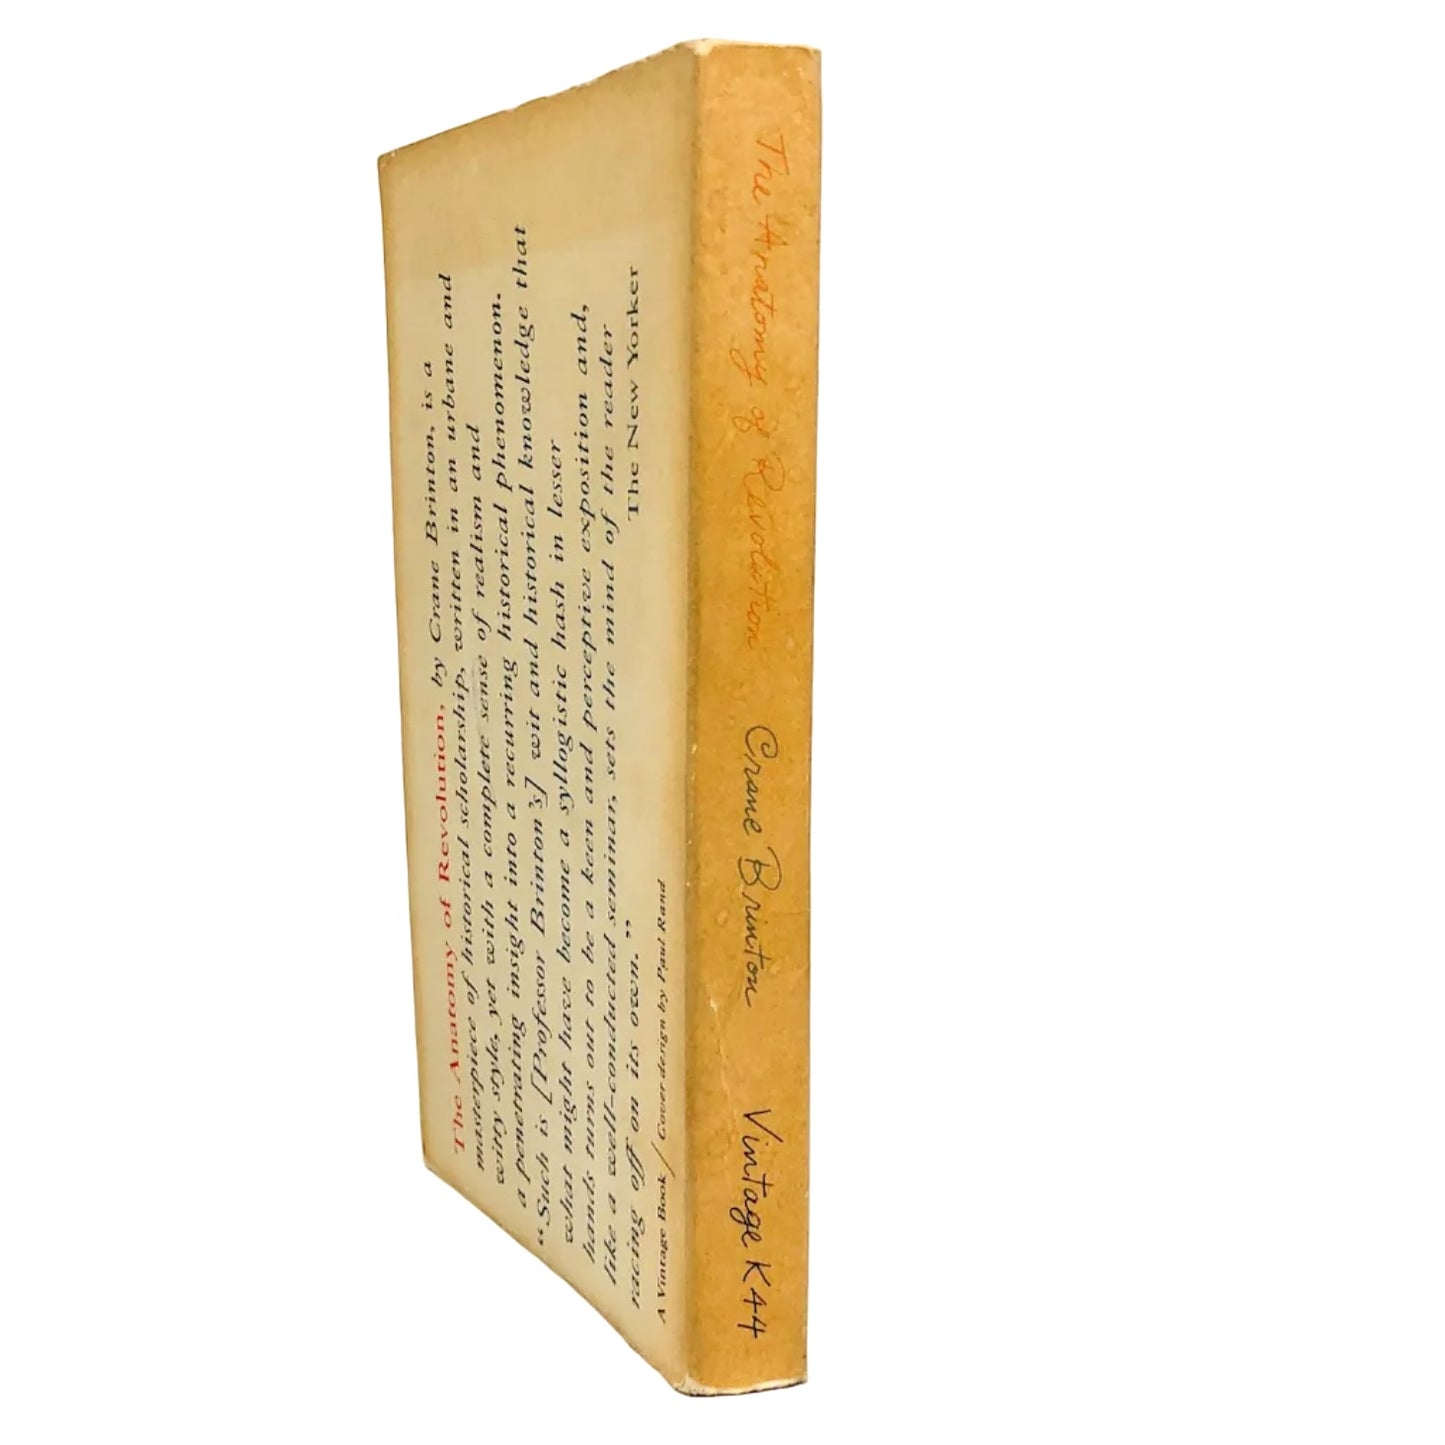 The Anatomy of Revolution, by Crane Brinton, is a
masterpiece of historical scholarship, written in an urbane and
witty style, yet with a complete sense of realism and
a penetrating insight into a recurring historical phenomenon.
“Such is [Professor Brinton's] wit and historical knowledge that
what might have become a syllogistic hash in lesser
hands turns out to be a keen and perceptive exposition and,
like a well-conducted seminar, sets the mind of the reader
racing off on its own.” The New Yorker
A Vintage Book / Cover design by Paul Rand
The Anatomy of Revolution Crane Brinton Vintage K44